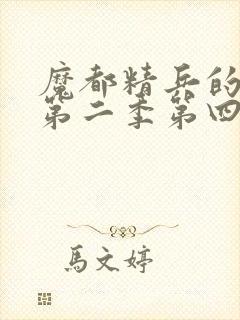 魔都精兵的
第二季第四
馬文婷